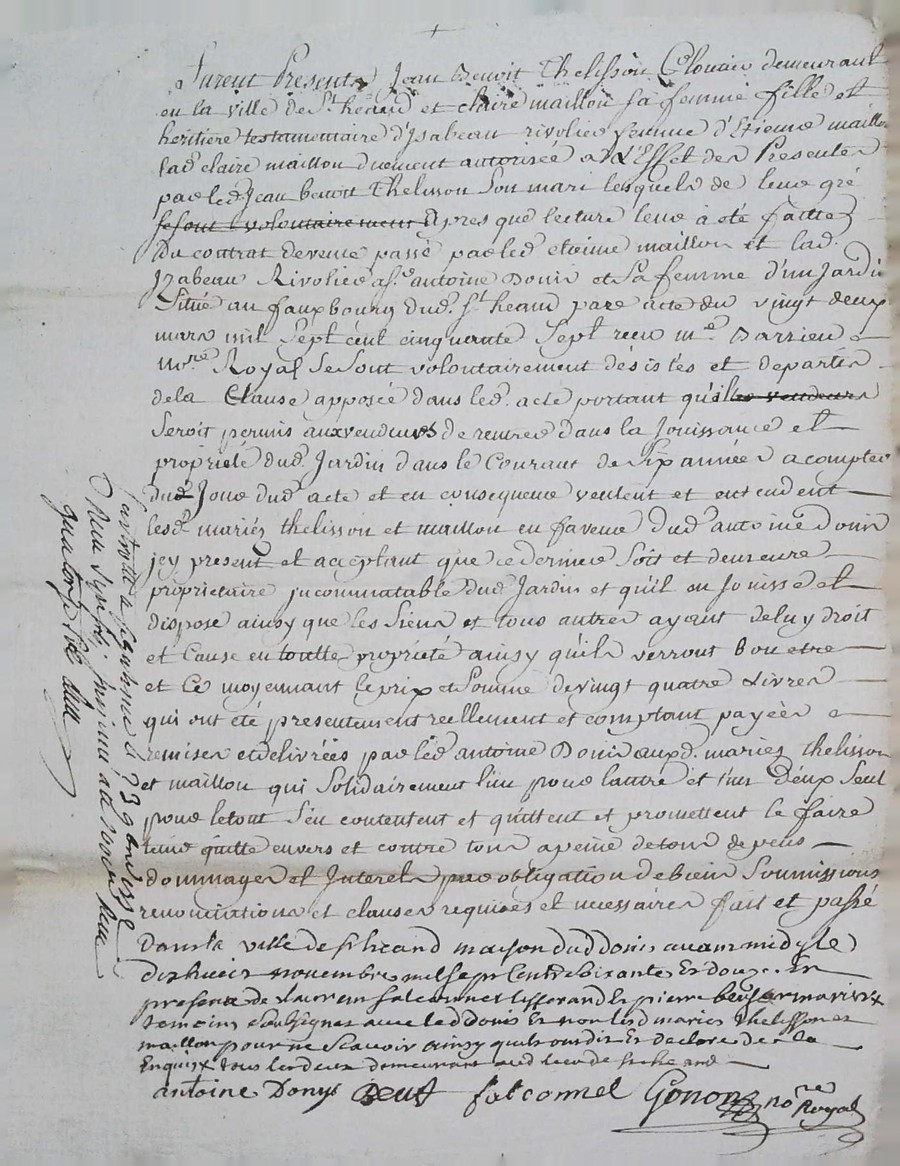 furent Presents Jean Benoit Thelisson Cloutier demeurant
en la ville de St heand et claire maillon sa femme fille et
heritiere testamentaire d'Isabeau rivolier femme d'Etiene maillon
lad claire maillon duement autorisée a L'Effet des Presentes
par led Jean benoit Thelisson Son mari lesquels de leur gré
se sont volontairement Apres que lecture leur à été faitte
Du contrat de vente passé par led etieine maillon et lad.
Izabeau Rivolier a Sr. antoine Donis et Sa femme d'un Jardin
Situé au fauxbourg dud. St heand pare acte du vingt deux
mars mil Sept cent cinquante Sept recu me Barrieu
Nore Royal Se Sont volontairement désistés et departis
de la Clause apposée dans led. acte portant qu'il les vendeurs
Seroit permis aux vendeurs de rentrer dans la Jouissance et
propriété dud. Jardin dans le Courant de Six années a compter
dud Jour dud acte et en consequence veulent et entendent
lesd. mariés thelisson et maillon en faveur dud antoine Donis
jcy present et acceptant que ce dernier Soit et demeure
proprietaire jncommutable dud Jardin et qu'il en Jouisse et
dispose ainsy que les Siens et tous autres ayant deluy droit
et Cause en toutte propriété ainsy qu'ils verront bon etre
et Ce moyennant le prix et Somme de vingt quatre Livres
qui ont été presentement reellement et comptant payées
remises et delivrées par led antoine Donis auxd. mariés thelisson
et maillon qui Solidairement l'un pour lautre et l'un d'eux Seul
pour letout S'en contentent et quittent et promettent le faire
tenir quitte envers et contre tous a peine de tous depens
dommages et Interets par obligation de biens Soumissions
renonciations et clauses requises et necessaires fait et passé
Dans la ville de st heand maison dud donis avant midy le
dixhuit novembre mil sept Cent Soixante Et douze En
presence de Laurent falconnet tisserand Et pierre beuf
temoins Soussignes avec led donis Et non lesd maries thelisson et
maillon pour ne Scavoir ainsy qu'ils ont dit Et declaré de ce
Enquis tous lesdeux demeurant aud lieu de st heand
antoine Donys Beuf falconnel Gonon nore Royal
Controllé a le 23 9bre 1772
Reçu
quatorze sols